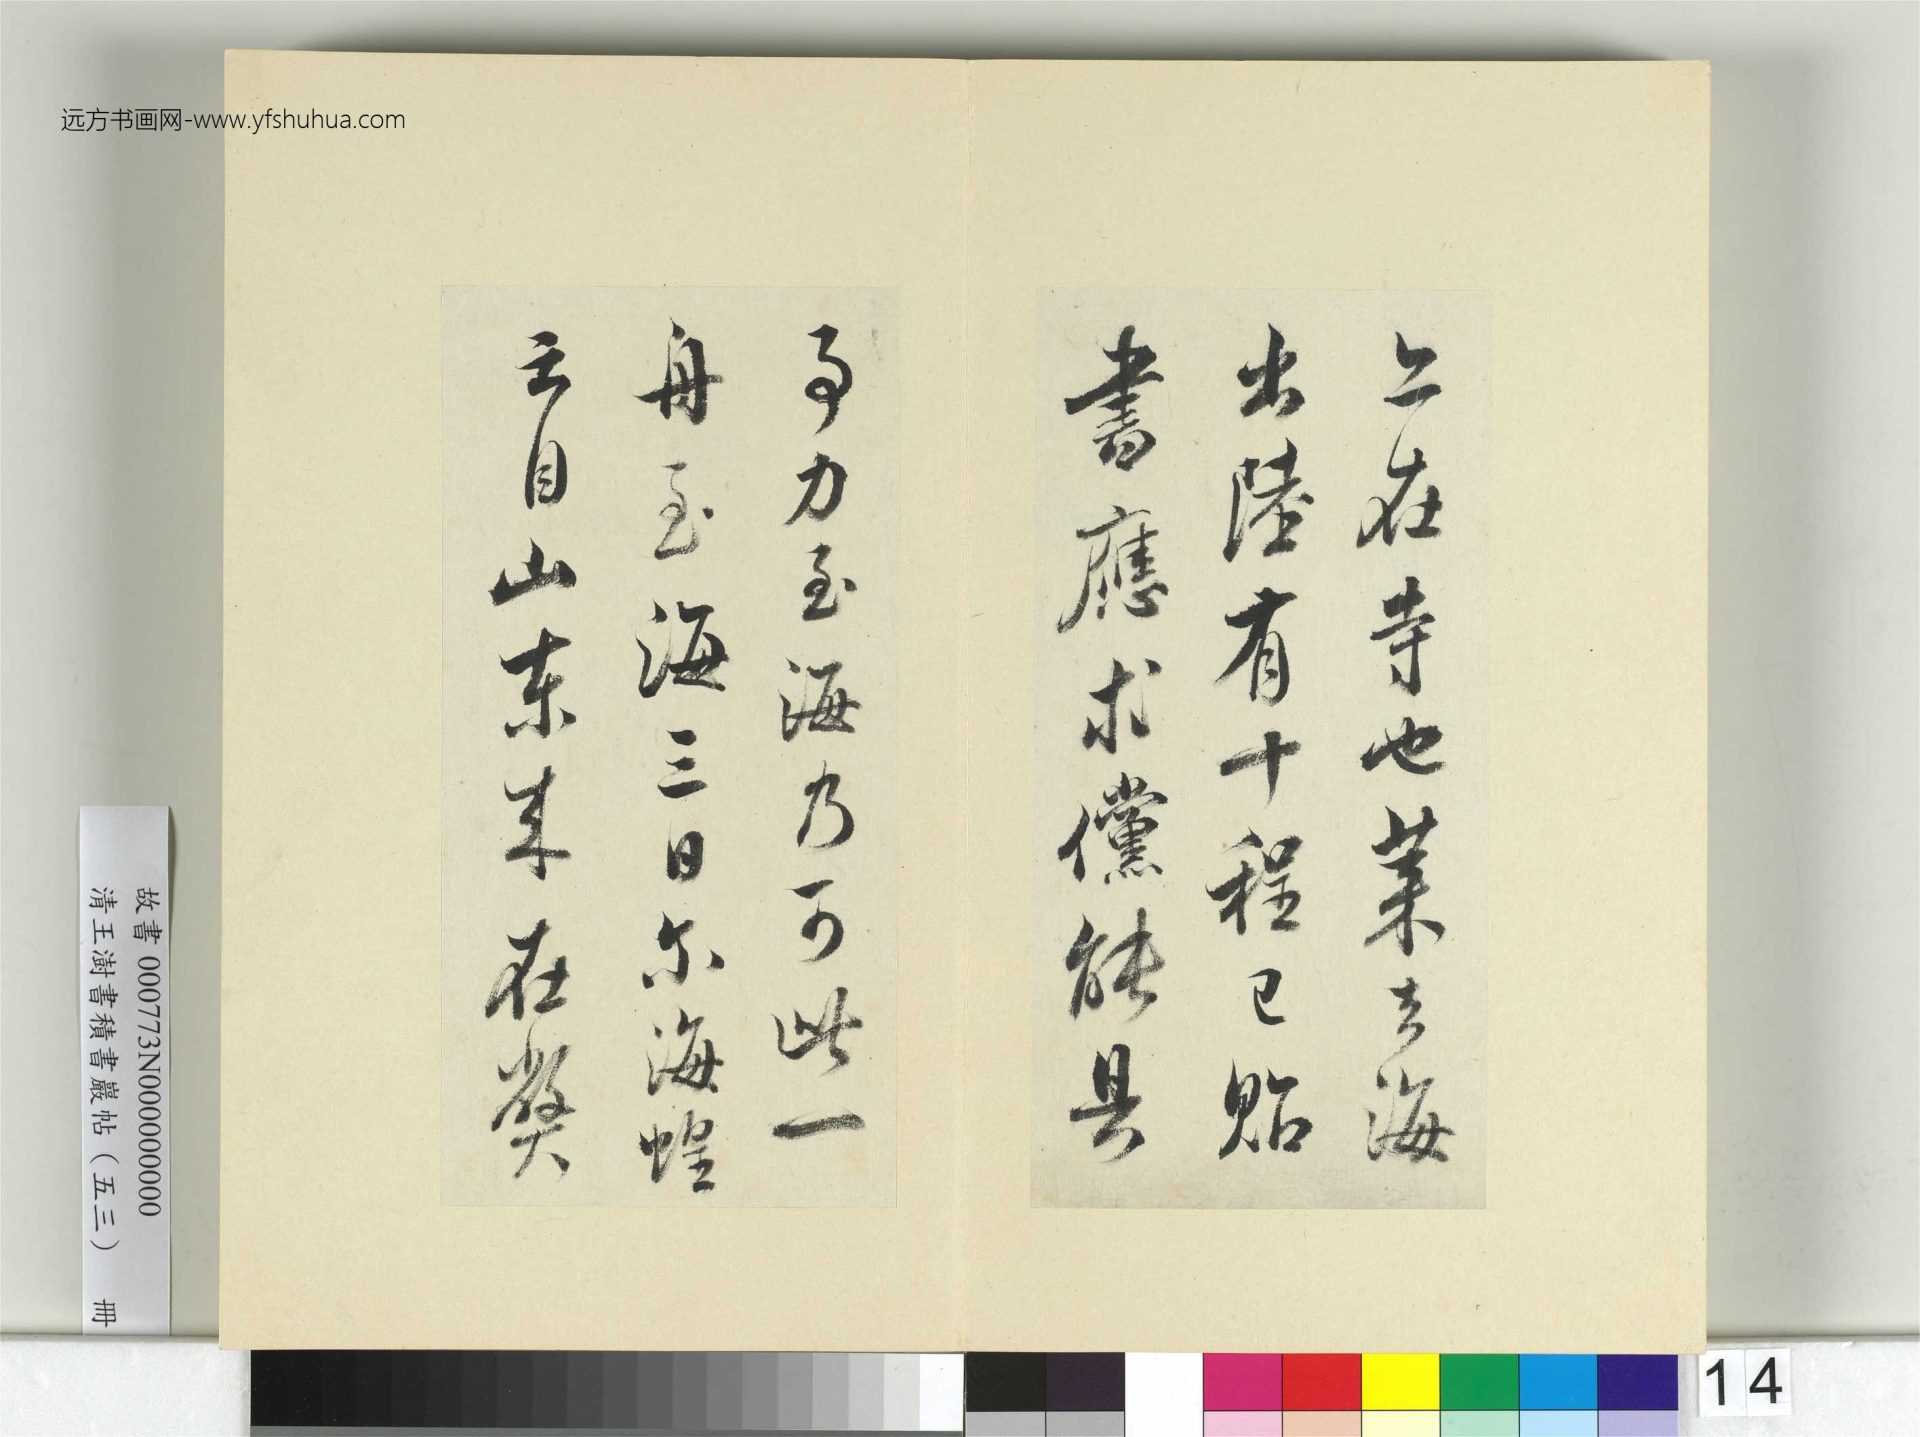 远方书画网-www.yfshuhua.com
上在寺也莱去海
出陸有十程已貽
書應求儻能具
事力至海乃可此一
舟至海三日尔海蝗
云自山東来在弊
故書 000773N000000000
清王澍書積書巖帖(五三) 冊
14